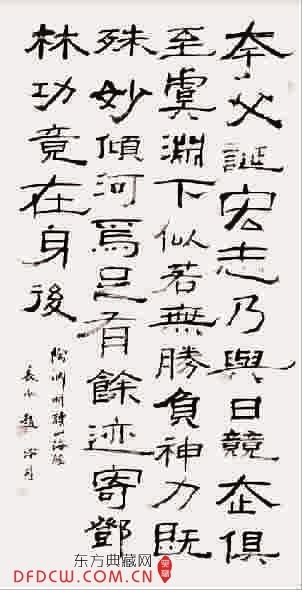 夸父誕宏志乃與日競走俱
至虞淵下似若無勝負神力既
殊妙傾河焉足有餘迹寄鄧
林功竟在身後
陶淵明讀山海經
長水趙冷月
东方典藏网
DFDCW.COM.CN